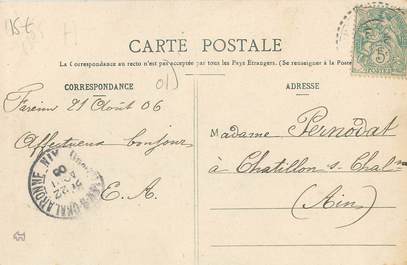 15€
CARTE POSTALE
La Correspondance au recto n'est pas acceptée par tous les Pays Etrangers. (Se renseignes à la Poste
CORRESPONDANCE
Fareins 21 Août 06
Affectueux bonjour
E. A.
ADRESSE
Madame Pernodat
à Chatillon s- Chalne
(Ain)
5
POSTES
CHALARONNE
AIN
22
06